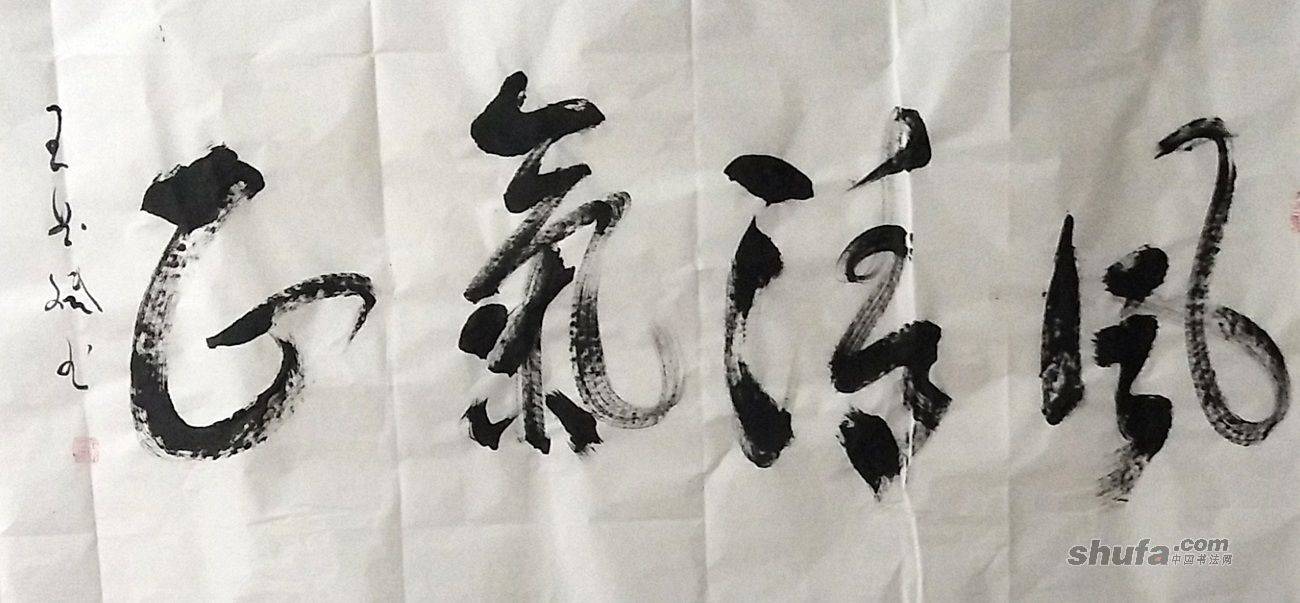 風清氣正
shufa.com
中国书法网